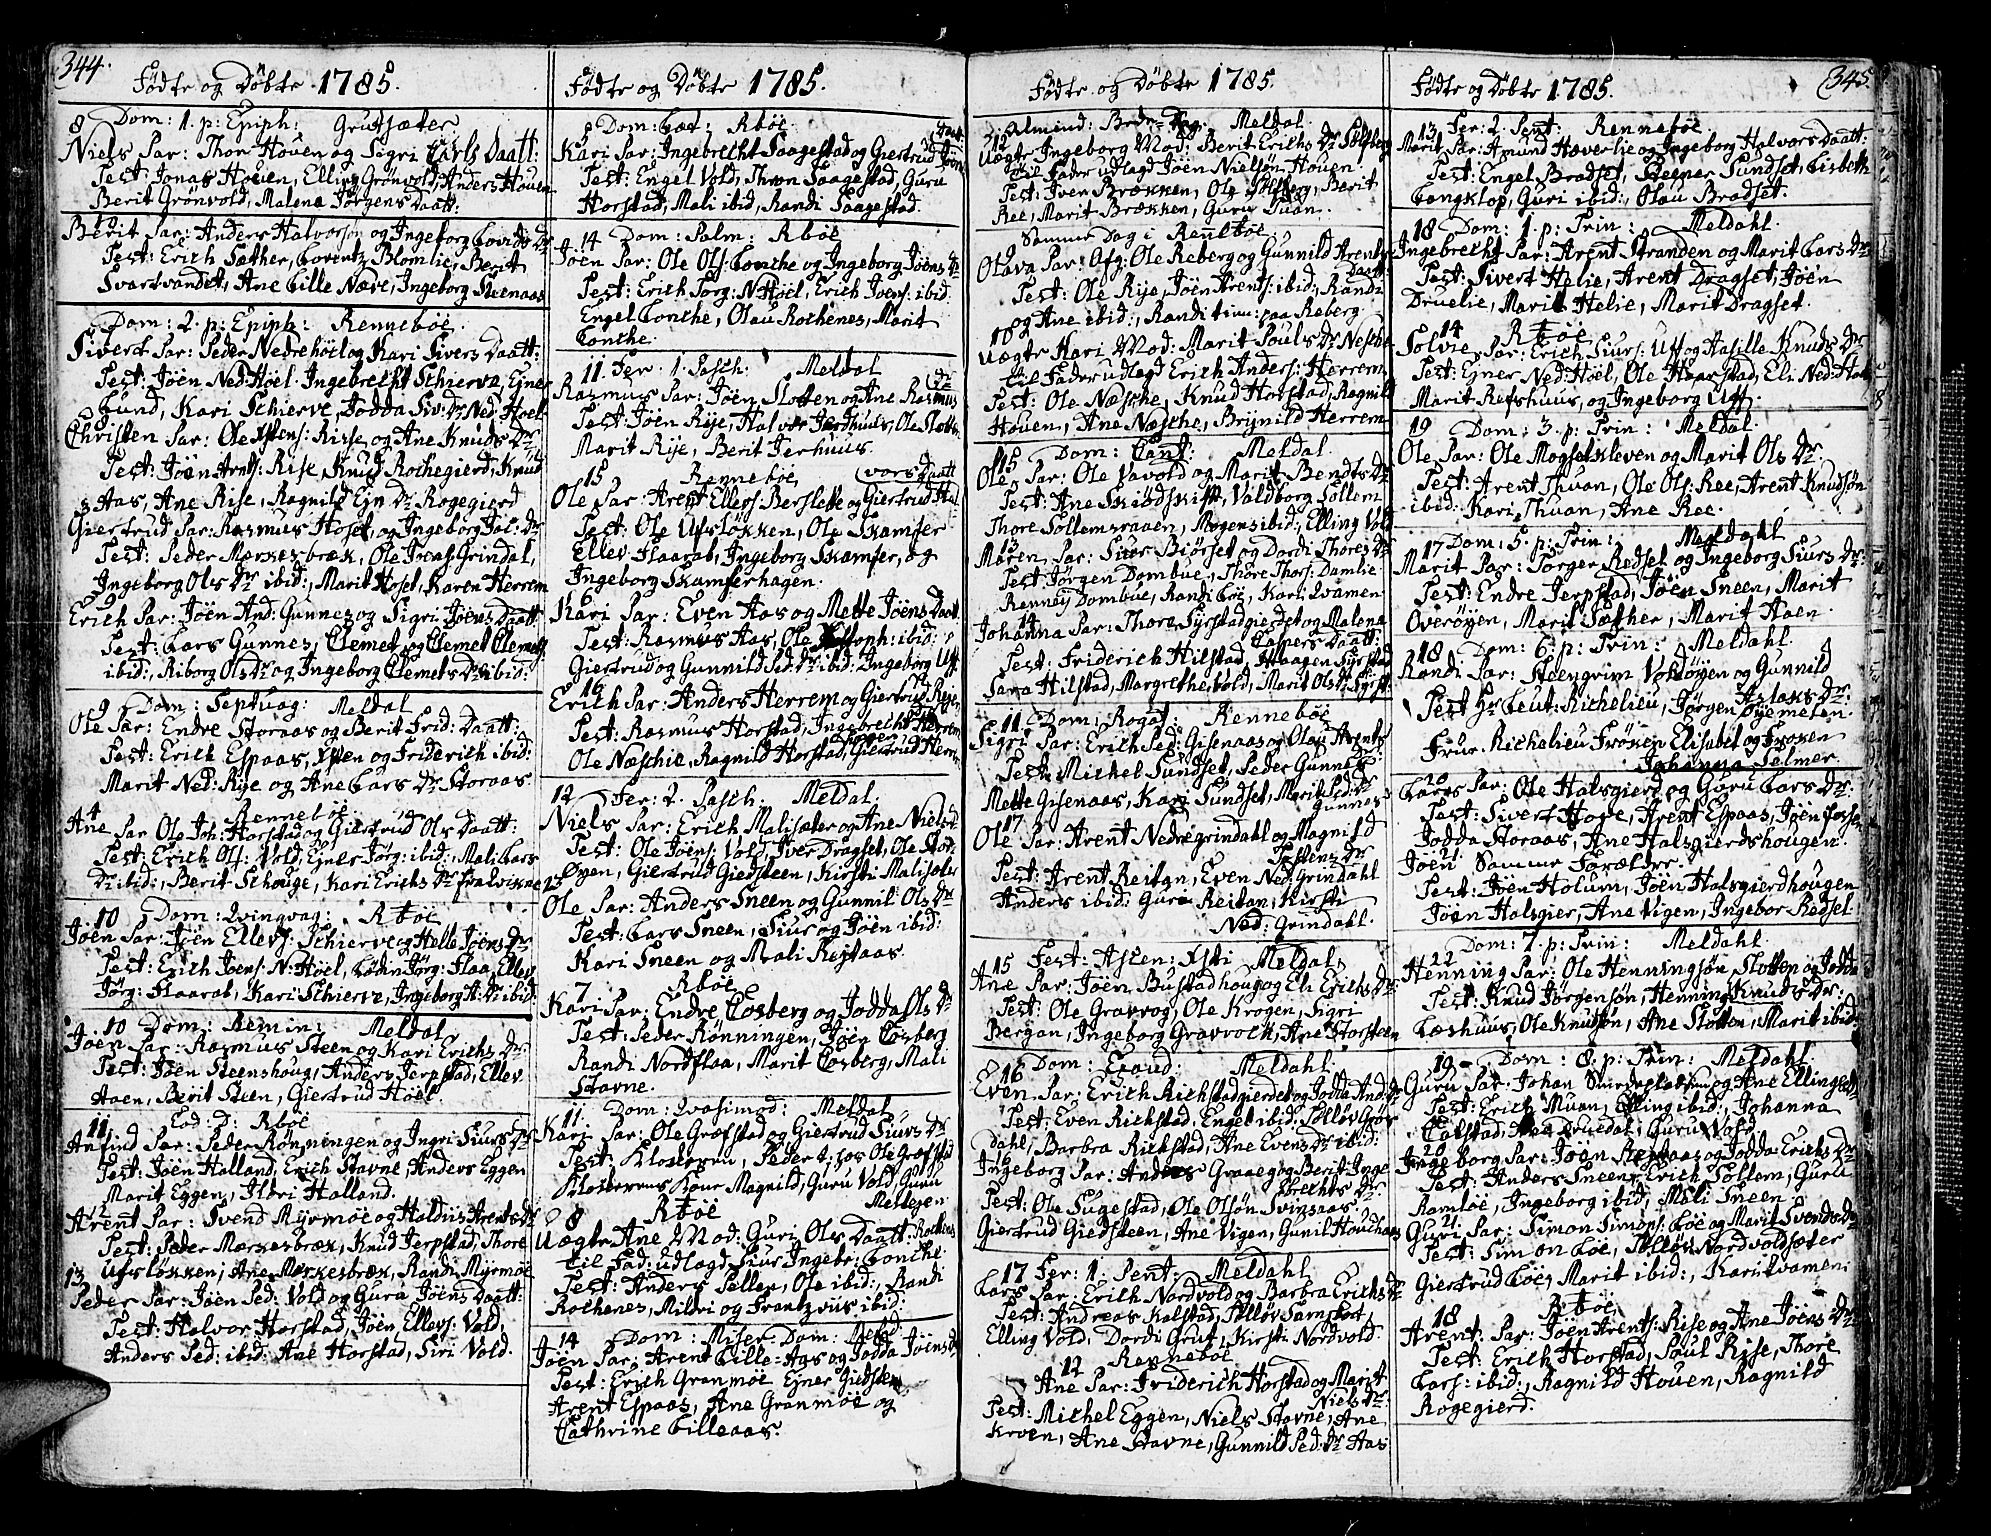 344.
Fødte og Døbte 1785.
8 Dom: 1. p: Epiph: Grutsæter
Niels Par: Thor Houen og Sigri Carls Daatt:
Test: Jonas Houen, Elling Grønvold, Anders Houen
Berit Grønvold, Malena Jørgens Daatt:
10
Berit Par: Anders Halvorsøn og Ingeborg
Test: Erich Sæther, Lorentz Blomlie, Berit
Svartvandet, Ane Lille Næve, Ingeborg Steenaas
Dom: 2. p: Epiph: Renneboe.
Sivert Par: Peder Nedrehoel og Kari Sivers Daatt:
Test: Jöen Ned: Höel. Ingebrecht Schierve, Ejner
Lund, Kari Schierve, Jodda Siv: Dr Ned: Hoel
Christen Par: Ole Rise, og Ane Knuds Dr
Test: Jöen Arnts: Rise, Knud Rochegierd, Knud
Aas, Ane Rise, Ragnild Ejn Dr Rogegierd
Giertrud Par: Rasmus Hoset, og Ingeborg Dr
Test: Peder Mærkesbræk, Ole Grindal,
Ingeborg Ols Dr ibid:, Marit Hoset, Karen Herrem
Erich Par: Jöen And: Gunnes og Sigri Jöens Daatt:
Test: Lars Gunnes, Clemet og Clemet
ibid:, Riborg Ols Dr og Ingeborg Clemets Dr ibid:
9 Dom: Septuag: Meldal
Ole Par: Endre Storaas og Berit Frid: Daatt:
Test: Erich Espaas, og Friderich ibid:
Marit Ned: Rye og Ane Lars Dr Storaas.
4 Renneboe.
Ane Par Ole Joh: Horstad og Giertrud Ols Daatt:
Test: Erich Ols: Vold, Ejner Jörg: ibid:, Mali Lars
Dr ibid:, Berit Schouge, Kari Erichs Dr
10 Dom: Qvinqvag: Rböe
Jöen Par: Jöen Ellevs: Schierve og Jöens Dr
Test: Erich Joens: N: Höel, Jörg: Flaa, Ellev
Jörg: Haarat, Kari Schierve, Ingeborg ibid:
10 Dom: Remin: Meldal
Jöen Par: Rasmus Steen og Kari Erichs Dr
Test: Jöen Steenshoug, Anders Jerpstad, Ellev
Aaen, Berit Steen, Giertrud Höel
11 Eod: D: Rböe
Par: Peder Rønningen og Ingri Siurs Dr
Test: Jöen Halland, Erich Stavne, Anders Eggen
Marit Eggen, Ildri Halland.
12
Arent Par: Svend Myrmoe og Arents Dr
Test: Peder Mærkesbræk, Knud Jerpstad, Thore
Ufsløkken, Ane Mærkesbræk, Randi Myrmoe
13
Peder Par: Jöen Ped: Vold og Gura Jöens Daatt:
Test: Halvor Horstad, Jöen Ellevs: Vold,
Anders Ped: ibid: Ane Horstad, Siri Vold.
Fødte og Døbte 1785.
Dom: Læt: Rböe
Kari Par: Ingebrecht Saagestad og Giertrud
Test: Engel Vold, Thron Saagestad, Guru
Horstad, Mali ibid, Randi Saagestad.
14 Dom: Palm: Rböe
Jöen Par: Ole Ols: Lonche og Ingeborg Jöens Dr
Test: Erich Jörg: N Höel, Erich Joens: ibid:
Engel Lonche, Olau Rochenes, Marit
Lonche.
11. Fer. 1 Pasch: Meldal
Rasmus Par: Jöen Slotten og Ane Rasmus Dr
Test: Jöen Rije, Halvor Jerhuus, Ole
Marit Rije, Berit Jerhuus.
15 Renneböe,
Ole Par: Arent Ellevs: Berslete og Giertrud Halvors Daatt
Test: Ole Ufsløkken, Ole Skamfer
Ellev Haarat, Ingeborg Skamfer, og
Ingeborg Skamferhagen.
6
Kari Par: Even Aas og Mette Jöens Daatt
Test: Rasmus Aas, Ole ibid:
Giertrud og Gunnild Ped: Dr ibid: Ingeborg
16
Erich Par: Anders Herrem og Giertrud
Test: Rasmus Horstad, Ingebrecht Herrem
Ole Næschie, Ragnild Horstad, Giertrud
12 Fer: 2. Pasch. Meldal.
Niels Par: Erich Malisæter og Ane Niels Dr
Test: Ole Jöens: Vold, Iver Dragset, Ole
Oyen, Giertrud Giedsteen, Kirsti Malisæter
Ole Par: Anders Sneen og Gunnil Ols Dr
Test: Lars Sneen, Siur og Jöen ibid:
Kari Sneen og Mali Rejtaas.
7 Rböe
Kari Par: Endre Cosberg og Jodda Ols Dr
Test: Peder Rønningen, Jöen Cosberg
Randi Nordflaa, Marit Cosberg, Mali
Stavne.
11. Dom: Qvasimod: Meldal
Kari Par: Ole Græfstad og Giertrud Siurs Dr
Test: Klockeren, Peder Ole Græfstad
Klockerens Kone Magnild, Guru Vold, Guru
8 Rböe
Uægte Ane Mod: Guri Ols Daatt: Rochnes
til Fad: udlagd Siur Ingebr: Lonche
Test: Anders Ole ibid:, Randi
Rochenes, Mildri og ibid:
14 Dom: Miser. Dom: Meld
Jöen Par: Arent Lille-Aas og Jodda Jöens Dr
Test: Erich Granmoe Ejner Giedsteen
Arent Espaas, Ane Granmöe og
Cathrine Lilleaas.
Fødte og Døbte 1785.
12 Almind: Bede-Dag. Meldal.
Uægte Ingeborg Mod: Berit Erichs Dr Solsberg
til Fader udlagd Jöen Nielsøn Houen
Test: Iver Brækken, Ole Solsberg, Berit
Ree, Marit Brækken, Guru Tuan.
Samme Dag i Rennebøe.
Olava Par: Afg: Ole Reberg og Gunnild Arents Daatt:
Test: Ole Rije, Jöen Arents: ibid:, Randi
og Ane ibid:, Randi paa Reberg.
10
Uægte Kari Mod: Marit Pouls Dr Nesche
til Fader udlagd Erich Anders: Herrem
Test: Ole Næsche, Knud Horstad, Ragnild
Houen, Ane Næsche, Brynild Herrem
15 Dom: Cant: Meldal.
Ole, Par: Ole Løvold og Marit Bendts Dr
Test: Ane Skiødskift, Valdborg Sollem
Thore Sollemsraaen, Mogens ibid:, Elling Vold
13
Maren Par: Siur Biørset og Dordi Thores Dr
Test: Jørgen Dombue, Thore Thors: Damlie
Renney Dombue, Randi Löe, Kari Qvamen
14
Johanna Par: Thore Syrstadgierdet og Malena Caspers Daatt:
Test: Friderich Hilstad, Haagen Syrstad
Sara Hilstad, Margrethe Vold, Marit Ols Dr Syrst
11 Dom: Rogat: Renneböe
Sigri Par: Erich Ped: Gisenaas og Olau Arents
Test: Michel Sundset, Peder Gunnes
Mette Gisenaas, Kari Sundset, Marit Ped: Dr Gunnes
17
Ole Par: Arent Nedregrindahl og Magnild
Test: Arent Reitan, Even Ned: Grindahl
Anders ibid: Gura Reitan, Kirsti
Ned: Grindahl.
15 Fest: Ascen: Xsti Meldal.
Ane Par: Jöen Bustadhoug og Eli Erichs Dr
Test: Ole Gravrog, Ole Krogen, Sigri
Bergan, Ingeborg Gravrock, Ane Storsteen
16 Dom: Exaud: Meldahl.
Even Par: Erich Richstadgierdet og Jodda And: Dr
Test: Even Richstad, Engel ibid: Solløv Grøs
dahl, Barbra Richstad, Ane Evens Dr ibid:
Ingeborg Par: Anders Graaeg og Berit Inge
brechts Dr.
Test: Ole Sugestad, Ole Olsøn Svinsaas.
Giertrud Giedsteen, Ane Vigen, Gunil Houchaas
17 Fer: 1. Pent: Meldahl
Lars Par: Erich Nordvold og Barbra Erichs Dr
Test: Andreas Kalstad, Solløv Samskot
Elling Vold. Dordi Grut, Kirsti Nordvold.
12 Renneböe.
Ane Par: Friderich Horstad og Marit Niels Dr
Test: Michel Eggen, Niels Stavne, Ane
Kroen, Ane Stavne, Gunnild Ped: Dr Aas
345.
Fødte og Døbte 1785.
13 Fer: 2. Pent: Renneböe
Marit Par: Amund Hæverlie og Ingeborg Halvors Daatt:
Test: Engel Bradset, Steener Sundset, Lisbeth
Langklop, Guri ibid:, Olau Bradset.
18 Dom: 1. p: Trin: Meldahl.
Ingebrecht Par: Arent Stranden og Marit Lars Dr
Test: Sivert Helie, Arent Dragset, Jöen
Druelie, Marit Helie, Marit Dragset.
14 Rböe
Solvie Par: Erich Siurs: Uff og Hasille Knuds Dr
Test: Ejner Ned: Höel, Ole Haarstad, Eli Ned: Höel
Marit Refshuus, og Ingeborg Uff.
19 Dom: 3. p: Trin: Meldal.
Ole Par: Ole Mogsetkleven og Marit Ols Dr.
Test: Arent Thuan, Ole Ols: Ree, Arent Knudsøn
ibid: Kari Thuan, Ane Ree.
17 Dom: 5. p: Trin: Meldahl
Marit Par: Torger Redset og Ingeborg Siurs Dr:
Test: Endre Jerpstad, Jöen Sneen, Marit
Overøyen, Marit Sæther, Marit Haen.
18 Dom: 6. p: Trin: Meldahl
Randi Par: Steengrim Voldøyen og Gunnild Aslaks Dr.
Test Hr Leut: Richelieu, Jørgen Øyemelen.
Frue Richelieu Frøken Elisabet og Frøken
Johanna Selmer.
20
Lars Par: Ole Halsgierd og Guru Lars Dr:
Test: Sivert Hove, Arent Espaas, Jöen
Jodda Storaas, Ane Halsgierdshougen.
Jöen Samme Forælder.
Test: Jöen Holum, Jöen Halsgierdhougen
Jöen Halsgier, Ane Vigen, Ingebor Redset
Dom: 7. p: Trin: Meldahl.
22
Henning Par: Ole Henningsøn Slotten og Jodda Knuds Dr.
Test: Knud Jørgensøn, Henning
Læshuus, Ole Knudsøn, Ane Slotten, Marit ibid:
19 Dom: 8. p: Trin: Meldahl.
Guru Par: Johan og Ane Ellings Dr
Test: Erich Muan, Elling ibid:, Johanna
Calstad, Ane Druedal, Guru Vold.
20
Ingeborg Par: Jöen Rejtaas og Jodda Erichs Dr
Test: Anders Sneen, Erich Sollem, Guru
Ramlöe, Ingeborg ibid:, Mali Sneen
21
Guri Par: Simon Simons: Löe og Marit Svends Dr
Test: Simon Löe, Solløv Nordvoldsæter
Giertrud Löe, Marit ibid:, Kari Qvamen
18 Rböe
Arent Par: Jöen Arents: Rise og Ane Jöens Dr
Test: Erich Horstad, Poul Rise, Thore
Lars: ibid:, Ragnild Houen, Ragnild
Rogegierd.